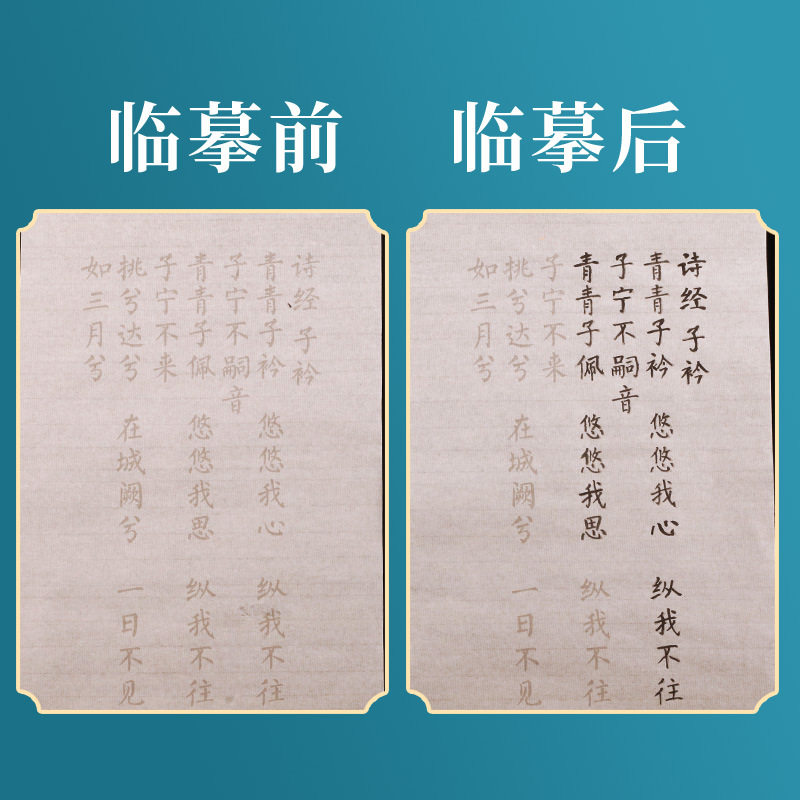 临摹前
诗经 子衿
青青子衿 悠悠我心 纵我不往
子宁不嗣音
青青子佩 悠悠我思 纵我不往
子宁不来
挑兮达兮 在城阙兮 一日不见
如三月兮
临摹后
诗经 子衿
青青子衿 悠悠我心 纵我不往
子宁不嗣音
青青子佩 悠悠我思 纵我不往
子宁不来
挑兮达兮 在城阙兮 一日不见
如三月兮